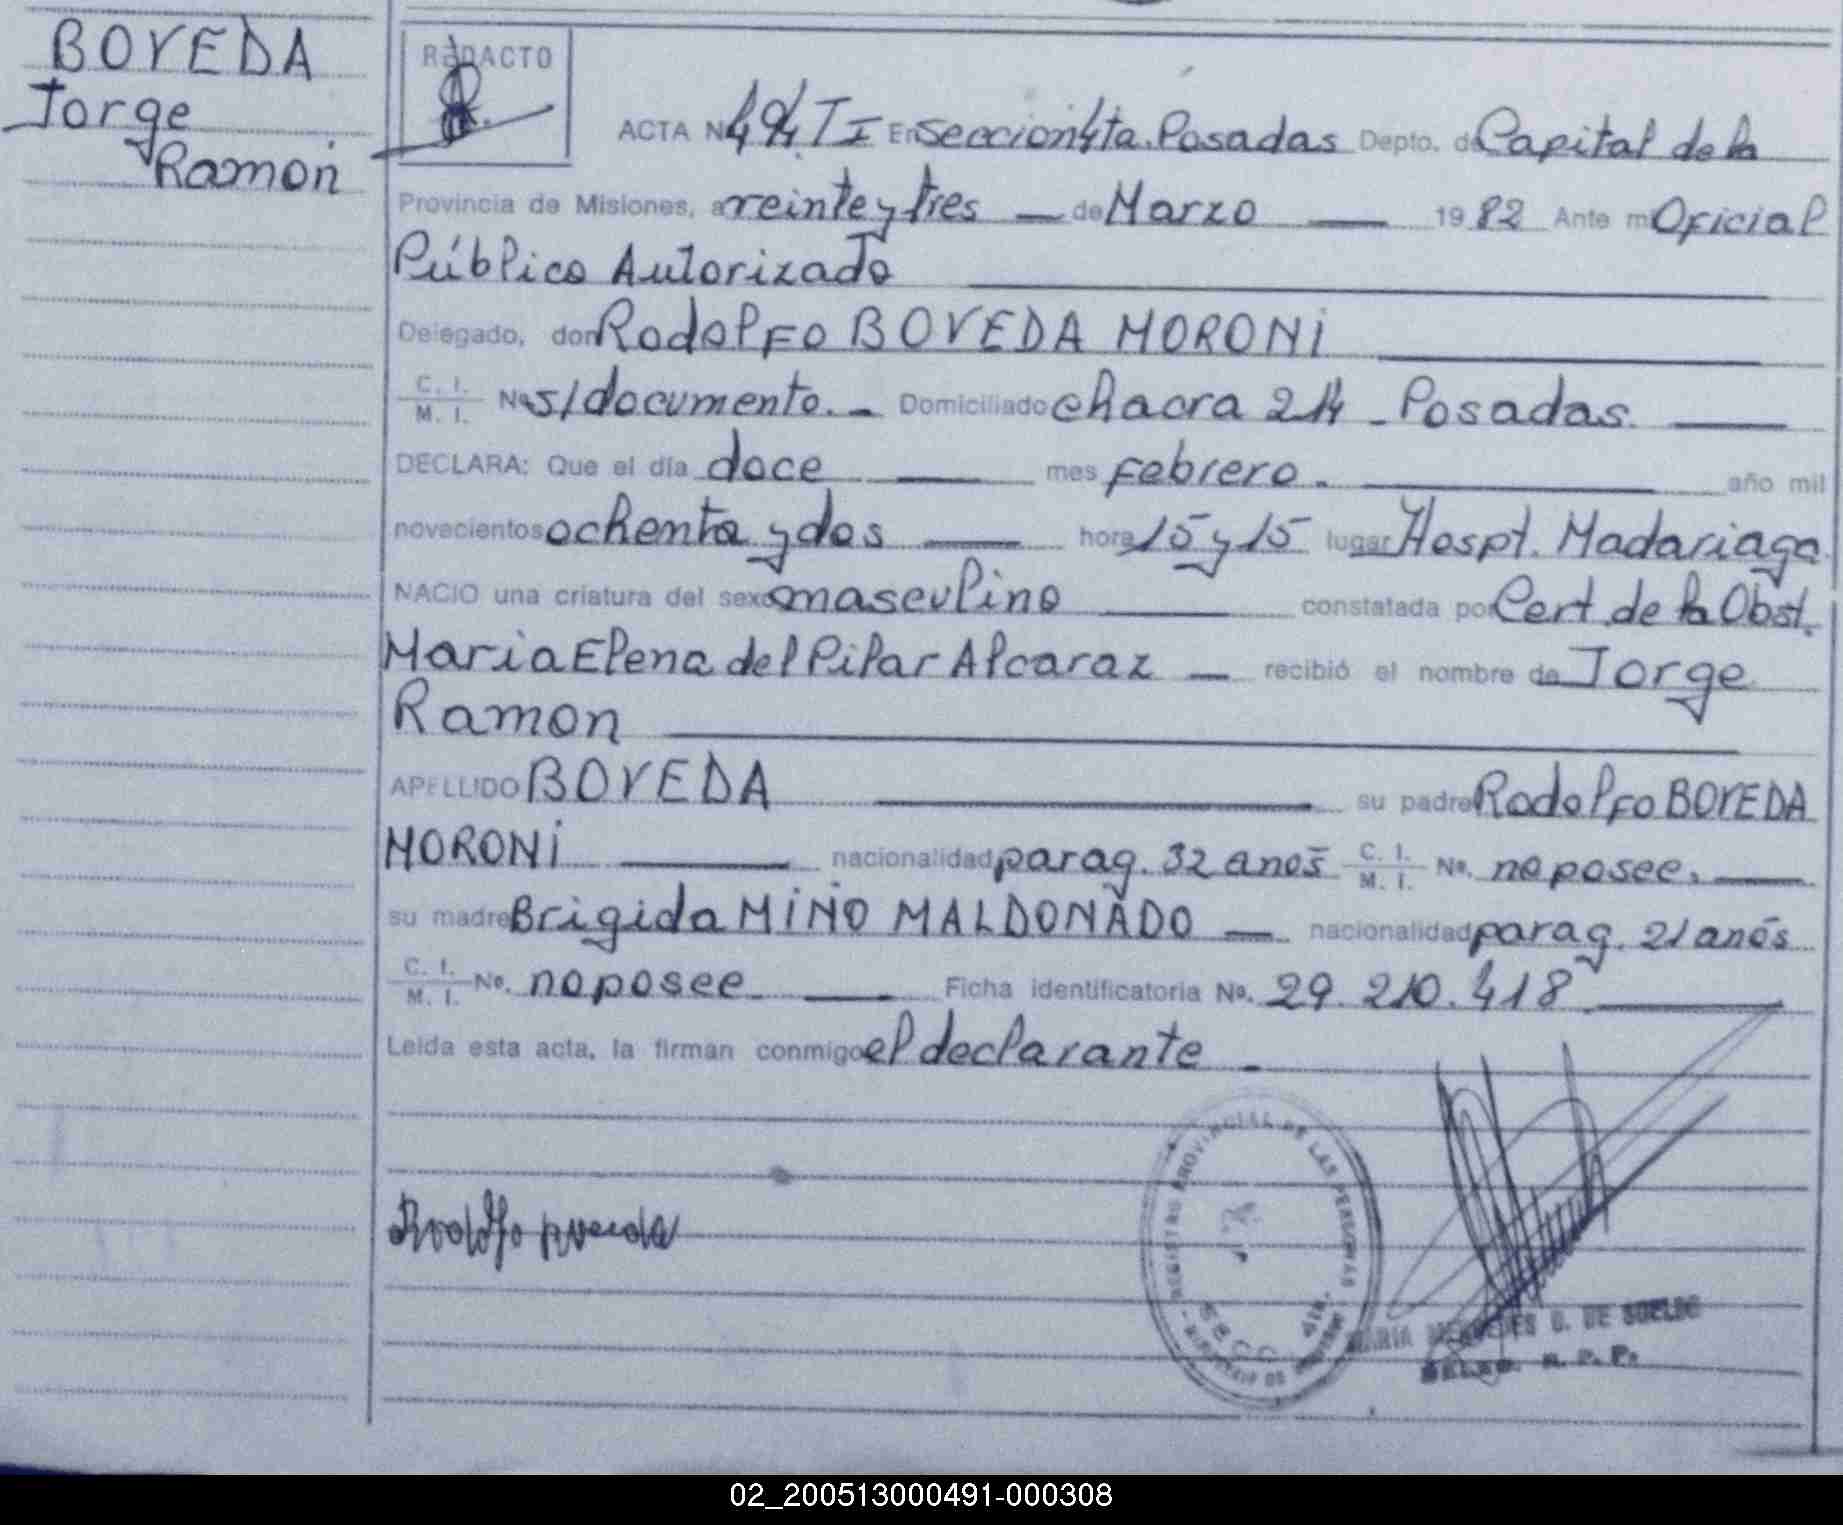 BOVEDA
Jorge
Ramon
REDACTO
ACTA N 494 T I En Seccion 4ta. Posadas Depto. de Capital de la
Provincia de Misiones, a veinte y tres — de Marzo — 1982 Ante mi Oficial
Público Autorizado
Delegado, don Rodolfo BOVEDA MORONI
C. I. / M. I. Nº s/documento. — Domiciliado chacra 214 - Posadas.
DECLARA: Que el día doce — mes febrero. — año mil
novecientos ochenta y dos — hora 15 y 15 lugar Hospt. Madariaga
NACIO una criatura del sexo masculino — constatada por Cert. de la Obst.
Maria Elena del Pilar Alcaraz — recibió el nombre de Jorge
Ramon
APELLIDO BOVEDA — su padre Rodolfo BOVEDA
MORONI — nacionalidad parag. 32 años C. I. / M. I. Nº. no posee. —
su madre Brigida MIÑO MALDONADO — nacionalidad parag. 21 años
C. I. / M. I. Nº. no posee — Ficha identificatoria Nº. 29.210.418 —
Leida esta acta, la firman conmigo el declarante -
REGISTRO PROVINCIAL DE LAS PERSONAS
MARIA MERCEDES D. DE SUELDO
R. P. P.
02_200513000491-000308